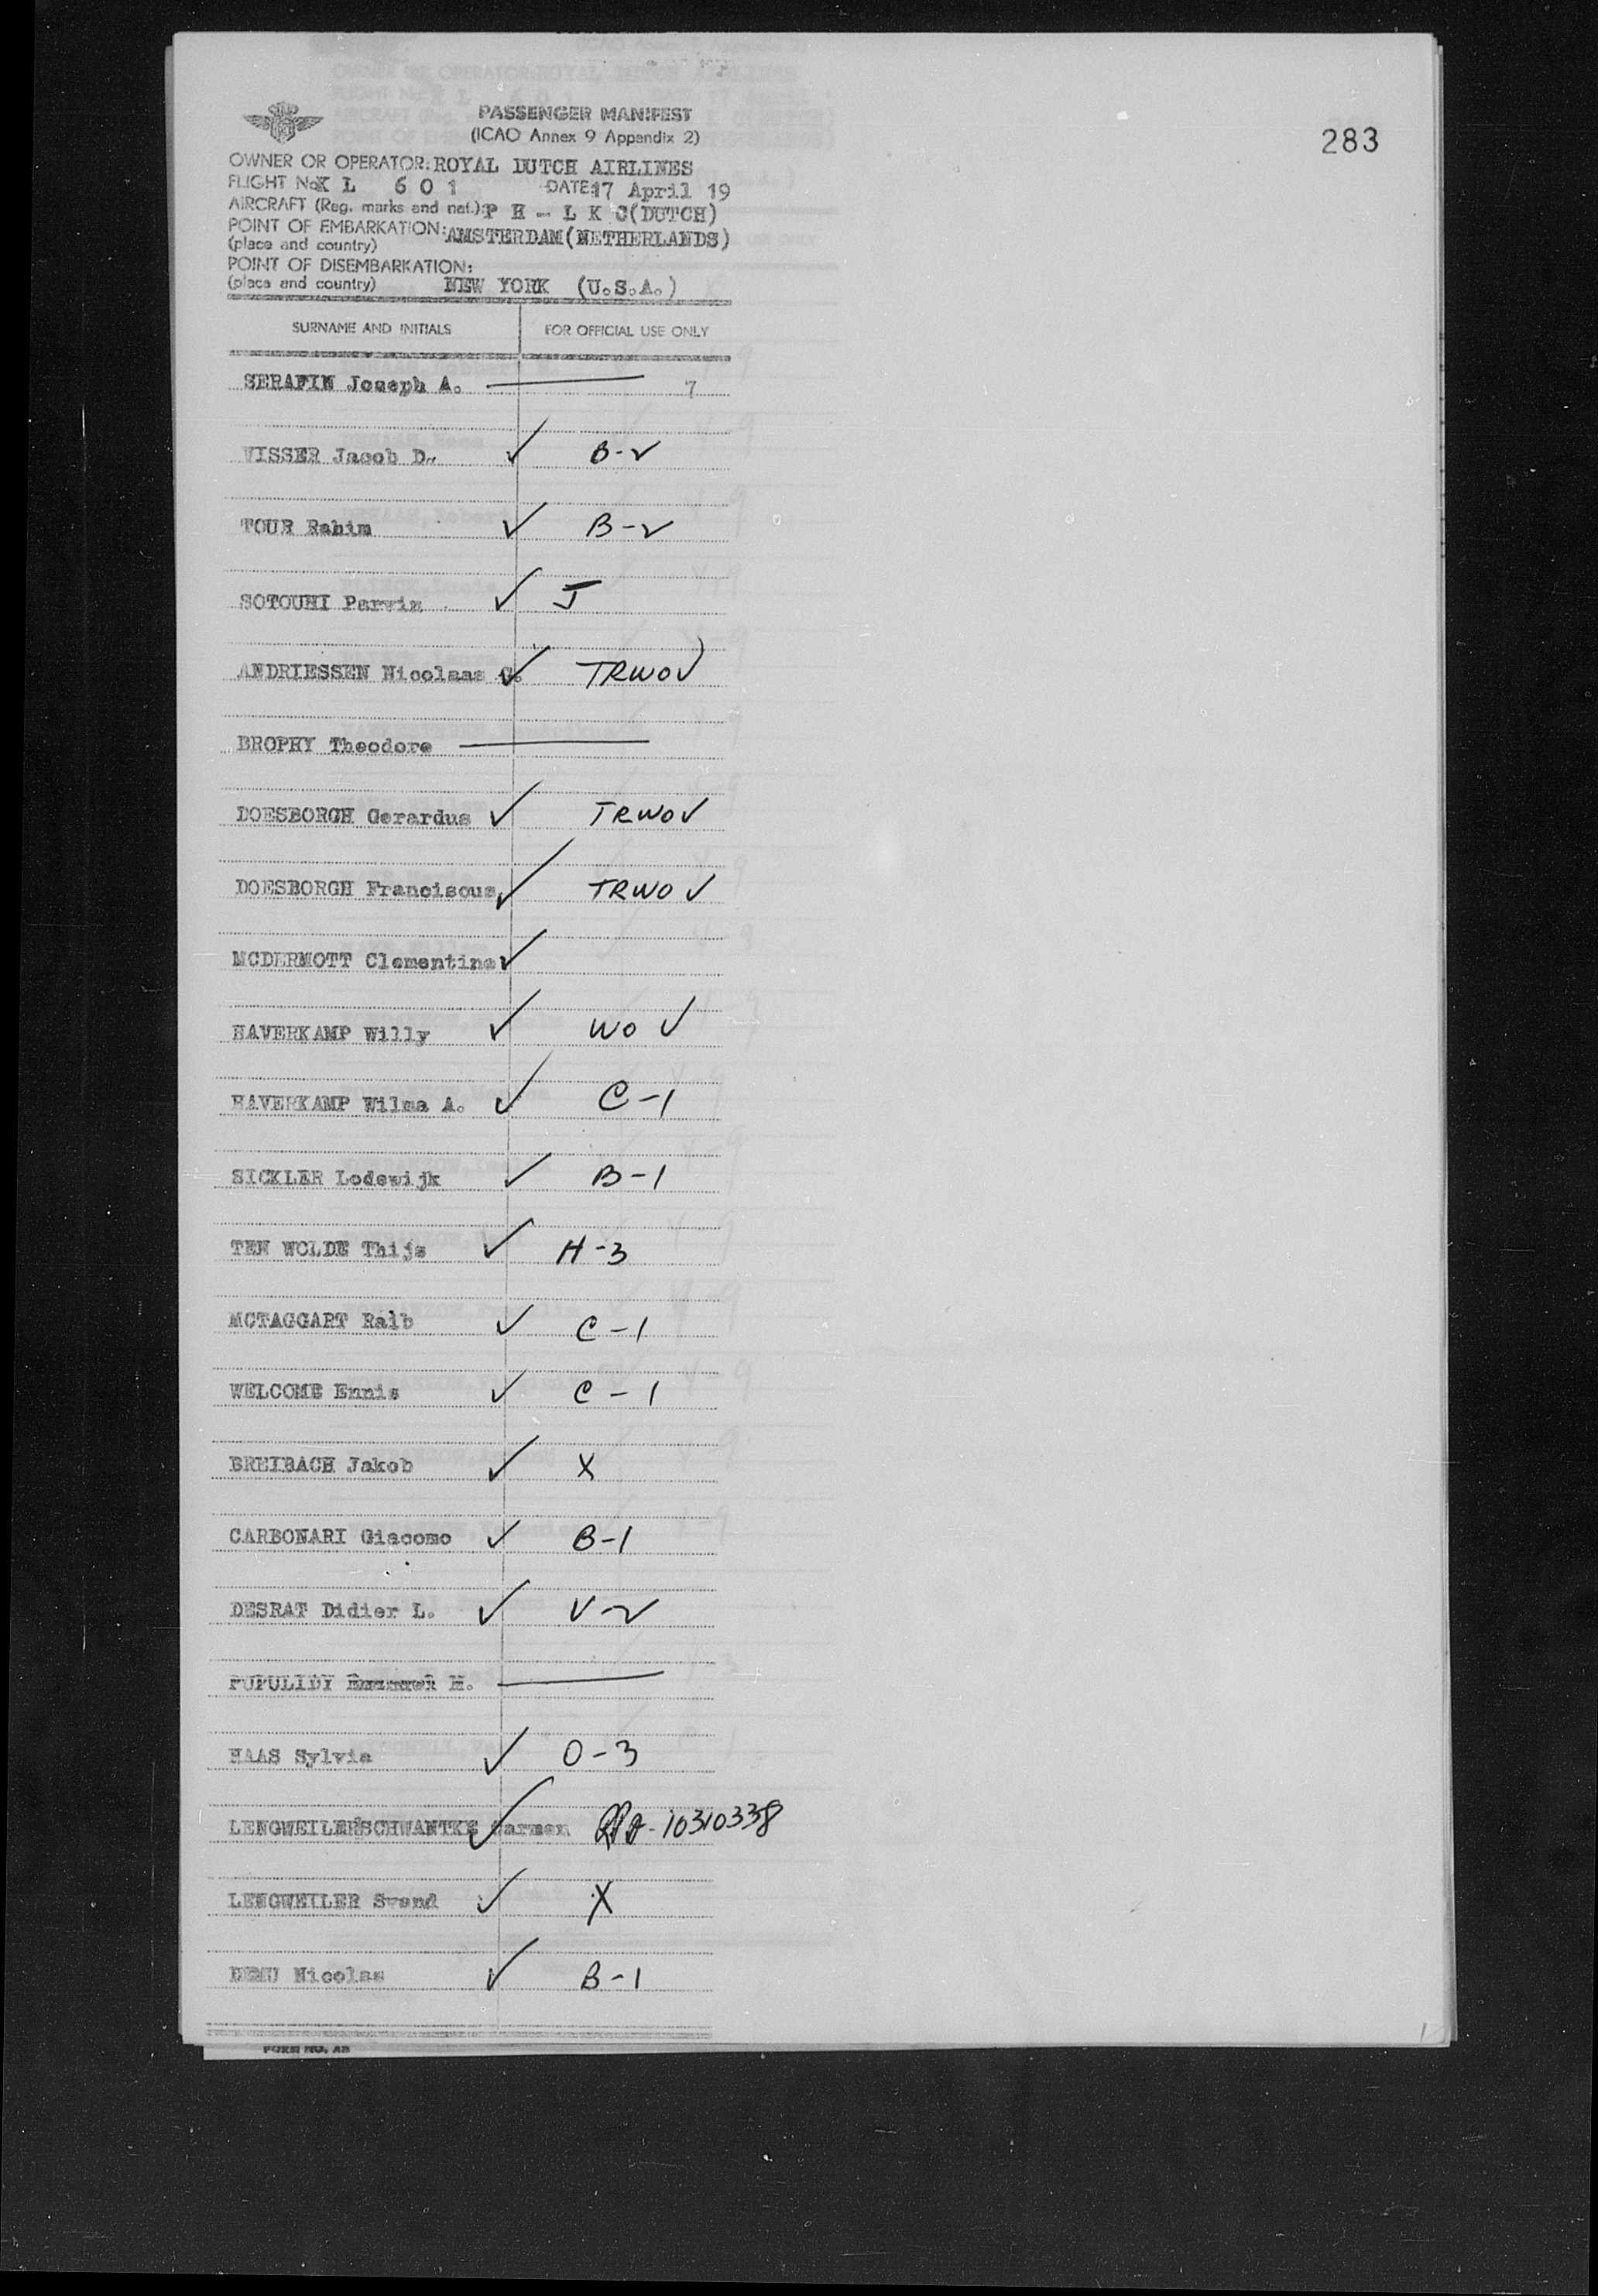 283
PASSENGER MANIFEST
(ICAO Annex 9 Appendix 2)
OWNER OR OPERATOR: ROYAL DUTCH AIRLINES
FLIGHT No: KL 601 DATE: 17 April 19
AIRCRAFT (Reg. marks and nat.): PH-LKC(DUTCH)
POINT OF EMBARKATION: AMSTERDAM(NETHERLANDS)
(place and country)
POINT OF DISEMBARKATION:
(place and country) NEW YORK (U.S.A.)
SURNAME AND INITIALS FOR OFFICIAL USE ONLY
SERAFIN Joseph A. 7
VISSER Jacob D. ✓ B-2
TOUR Rahim ✓ B-2
SOTOUHI Parviz ✓ J
ANDRIESSEN Nicolaas G. ✓ TRWOV
BROPHY Theodore
DOESBORGH Gerardus ✓ TRWOV
DOESBORGH Franciscus ✓ TRWOV
MCDERMOTT Clementine ✓
HAVERKAMP Willy ✓ WOV
HAVERKAMP Wilma A. ✓ C-1
SICKLER Lodewijk ✓ B-1
TEN WOLDE Thijs ✓ H-3
MCTAGGART Ralb ✓ C-1
WELCOME Ennis ✓ C-1
BREIBACH Jakob ✓ X
CARBONARI Giacomo ✓ B-1
DESRAT Didier L. ✓ V-2
PUPULIDY H.
HAAS Sylvia ✓ O-3
LENGWEILERSCHWANTKE Carmen ✓ 10310338
LENGWEILER Svend ✓ X
DEMU Nicolas ✓ B-1
FORM NO. AB